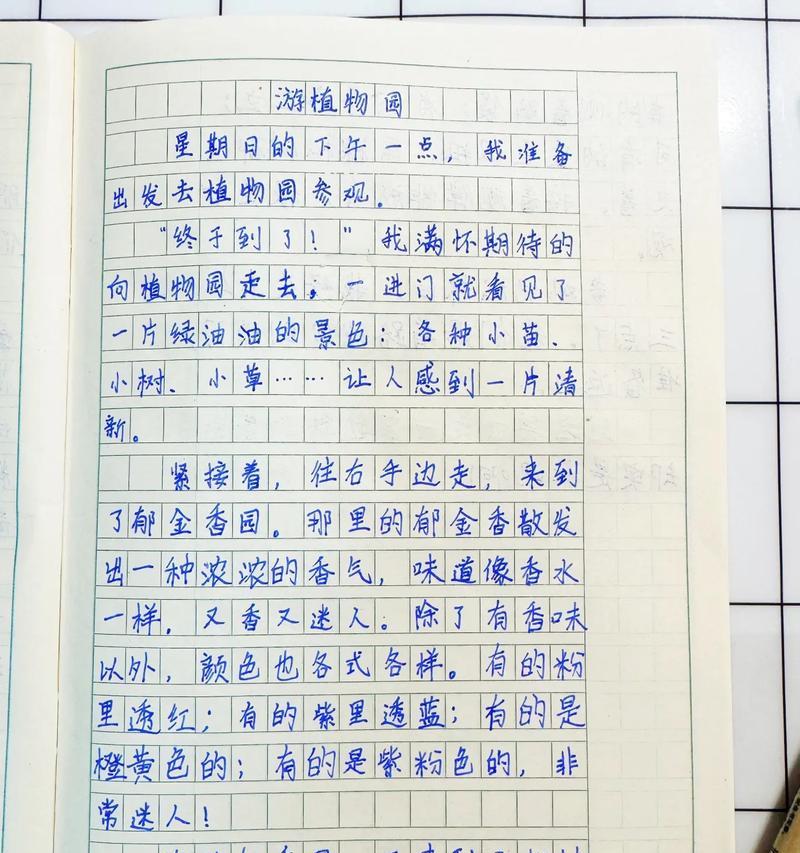 游植物园
星期日的下午一点，我准备
出发去植物园参观。
“终于到了！”我满怀期待的
向植物园走去，一进门就看见了
一片绿油油的景色：各种小苗、
小树、小草……让人感到一片清
新。
紧接着，往右手边走，来到
了郁金香园。那里的郁金香散发
出一种浓浓的香气，味道像香水
一样，又香又迷人。除了有香味
以外，颜色也各式各样。有的粉
里透红；有的紫里透蓝；有的是
橙黄色的；有的是紫粉色的，非
常迷人！